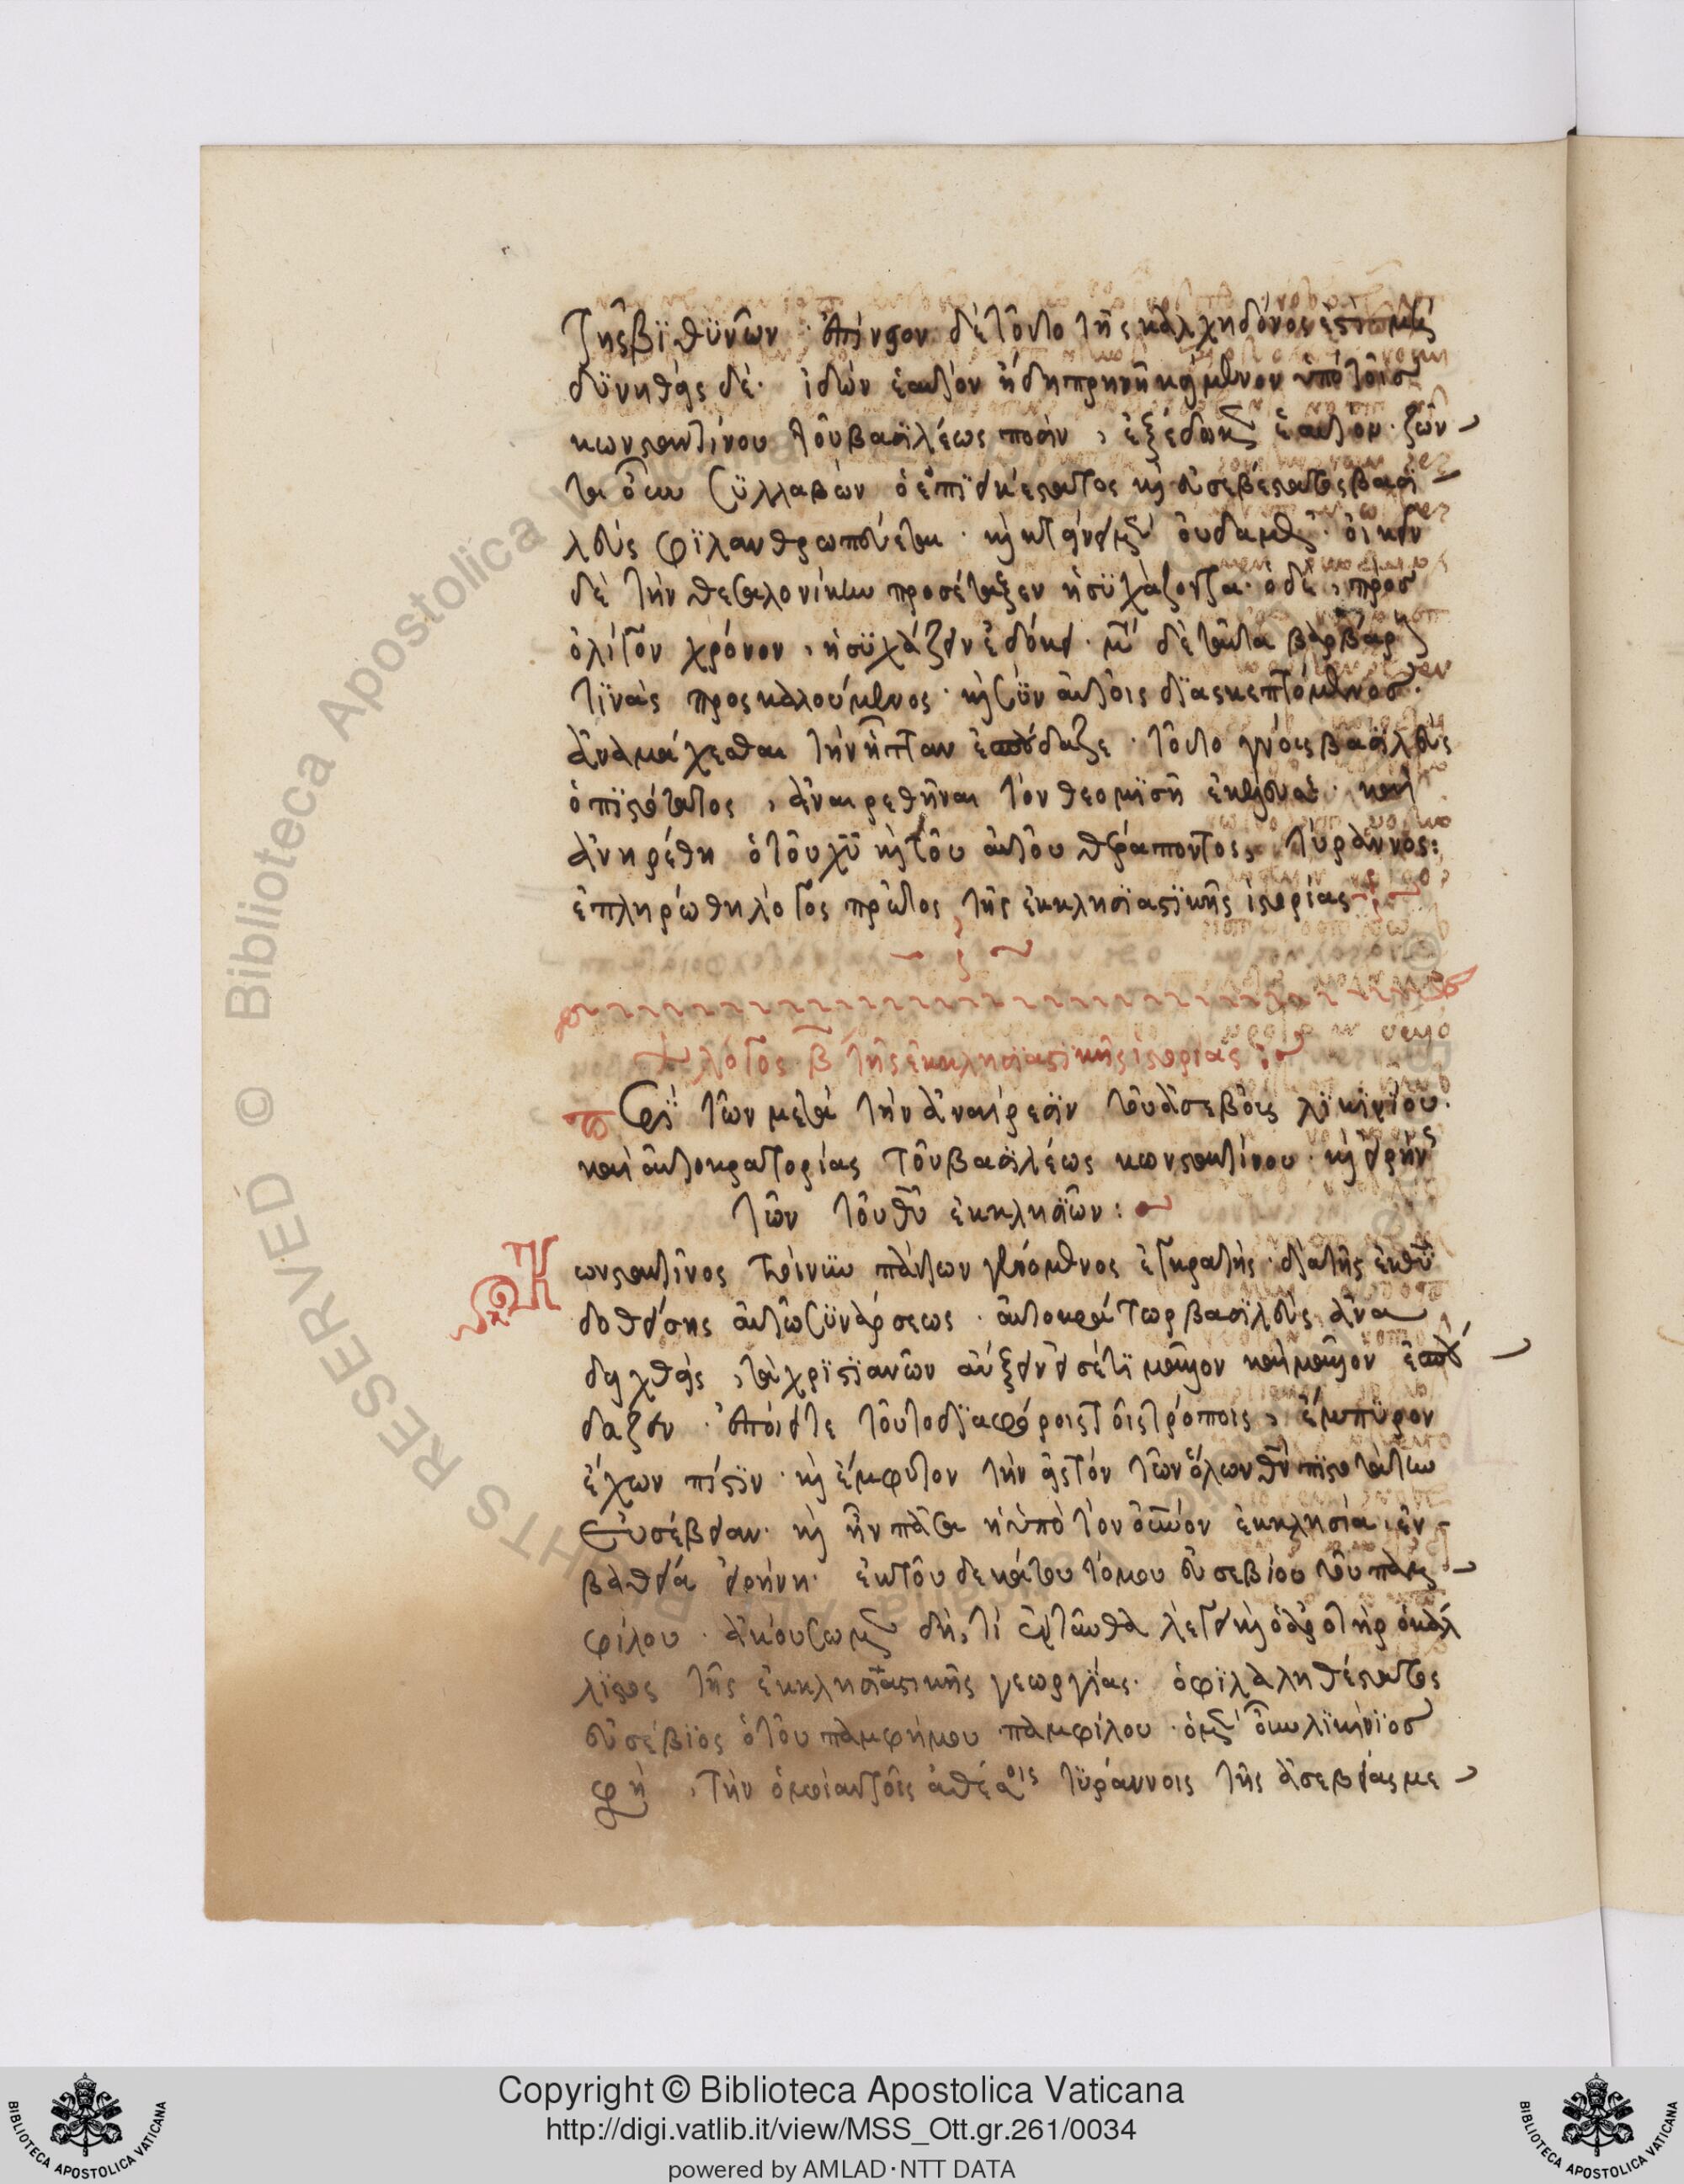 τῆς βϊθϋνῶν · ἐπίνειον δὲ τοῦτο τῆς καλχηδόνος
δϋνηθεὶς δέ · ἰδὼν ἑαυτὸν ἤδη πρηνῆ κείμενον ὑπὸ τοῖσ
κωνσταντίνου τοῦ βασιλέως ποσὶν, ἐξέδωκεν ἑαυτόν · ζῶν
τα οὖν συλλαβὼν ὁ ἐπϊεικέστατος καὶ εὐσεβέστατος βασϊ
λεὺς φϊλανθρωπεύεται · καὶ κτείνει μὲν οὐδαμῶς · οἰκεῖν
δὲ τὴν θεσαλονίκην προσέταξεν ἡσϋχάζοντα · ὁ δὲ, πρὸσ
ὀλίγον χρόνον, ἡσϋχάζειν ἐδόκει · μετὰ δὲ ταῦτα βαρβάρους
τϊνὰς προσκαλούμενος · καὶ σϋν αὐτοῖς δϊασκεπτόμενοσ ·
ἀναμάχεσθαι τὴν ἧτταν ἐσπούδαζε · τοῦτο γνοὺς βασϊλεὺς
ὁ πϊστότατος, ἀναιρεθῆναι τὸν θεομϊσῆ ἐκέλευσε · καὶ
ἀνηρέθη ὁ τοῦ χῦ καὶ τοῦ αὐτοῦ θεράποντος, τύραννος :
ἐπληρώθη λόγος πρῶτος τῆς ἐκκλησϊαστϊκῆς ἱστορίας
λόγος β τῆς ἐκκλησϊαστϊκῆς ἱστορίας :
Περὶ τῶν μετὰ τὴν ἀναίρεσϊν τοῦ ἀσεβοῦς λϊκϊνίου ·
καὶ αὐτοκρατορίας τοῦ βασϊλέως κωνσταντίνου · καὶ εἰρήνης
τῶν τοῦ θῦ ἐκκλησϊῶν :
Κωνσταντῖνος τοίνυν πάντων γενόμενος ἐγκρατὴς · διὰ τῆς ἐκ θῦ
δοθείσης αὐτῷ συνάρσεως · αὐτοκράτωρ βασϊλεὺς ἀνα
δειχθεὶς, τὰ χρϊστϊανῶν αὔξειν εἰσέτϊ μᾶλλον καὶ μᾶλλον ἐσπού
δαζεν · ἐποίει τε τοῦτο δϊαφόροις τοῖς τρόποις, ἔμπϋρον
ἔχων πίστϊν · καὶ ἔμφυτον τὴν εἰς τὸν τῶν ὅλων θν πϊστοτάτην
εὐσέβειαν · καὶ ἦν πᾶσα ἡ ὑπὸ τὸν οὐνον ἐκκλησία, ἐν
βαθείᾳ εἰρήνῃ · ἐκ τοῦ δεκάτου τόμου εὐσεβίου τοῦ παμ
φίλου · ἀκούσωμεν δὴ, τί ἐνταῦθα λέγει καὶ ὁ ἀροτὴρ ὁ κάλ
λϊστος τῆς ἐκκλησϊαστικῆς γεωργϊας · ὁ φϊλαληθέστατος
εὐσέβϊος ὁ τοῦ παμφήμου παμφίλου · ὁ μὲν οὖν λϊκίνϊοσ
φησὶ, τὴν ὁμοίαν τοῖς ἀθέοις τϋράννοις τῆς ἀσεβείας με
Copyright © Biblioteca Apostolica Vaticana
http://digi.vatlib.it/view/MSS_Ott.gr.261/0034
powered by AMLAD·NTT DATA